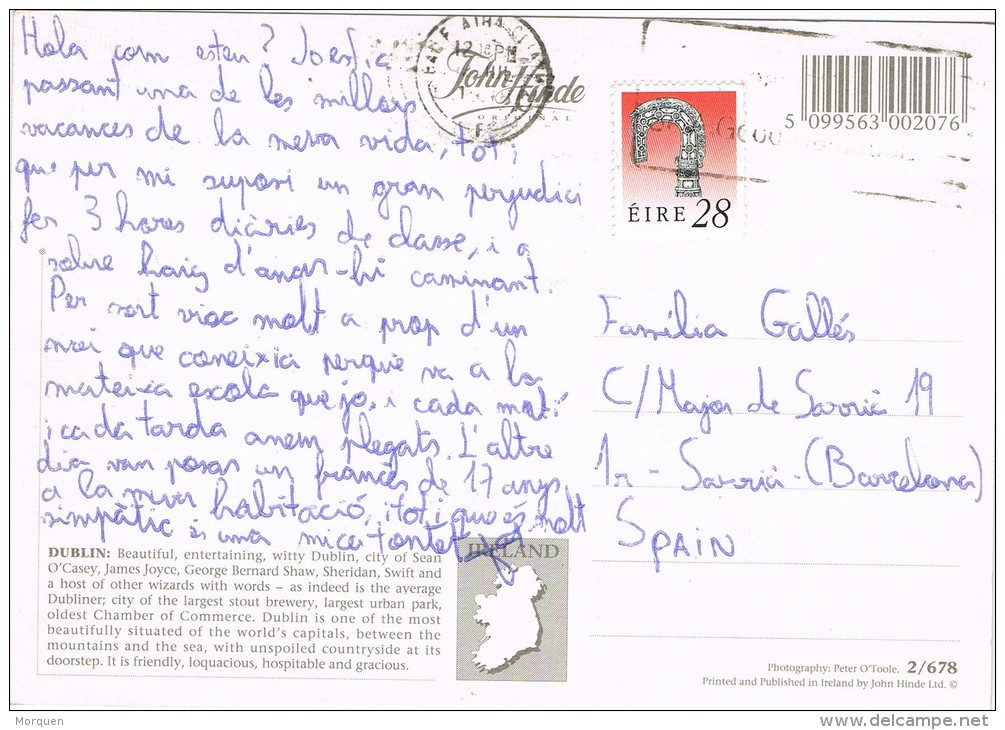 Hola com esteu? Jo estic
passant una de les millors
vacances de la meva vida, tot i
que per mi suposi un gran perjudici
fer 3 hores diàries de classe, i a
sobre haig d'anar-hi caminant.
Per sort visc molt a prop d'un
noi que coneixia perque va a la
mateixa escola que jo, i cada matí
i cada tarda anem plegats. L'altre
dia van posar un francès de 17 anys
a la meva habitació, i tot i que és molt
simpàtic és una mica tontet
John Hinde
ORIGINAL
ÉIRE 28
5 099563 002076
Família Gallés
C/Major de Sarrià 19
1r - Sarrià - (Barcelona)
SPAIN
DUBLIN: Beautiful, entertaining, witty Dublin, city of Sean
O'Casey, James Joyce, George Bernard Shaw, Sheridan, Swift and
a host of other wizards with words – as indeed is the average
Dubliner; city of the largest stout brewery, largest urban park,
oldest Chamber of Commerce. Dublin is one of the most
beautifully situated of the world's capitals, between the
mountains and the sea, with unspoiled countryside at its
doorstep. It is friendly, loquacious, hospitable and gracious.
IRELAND
Photography: Peter O'Toole. 2/678
Printed and Published in Ireland by John Hinde Ltd. ©
Morquen
www.delcampe.net